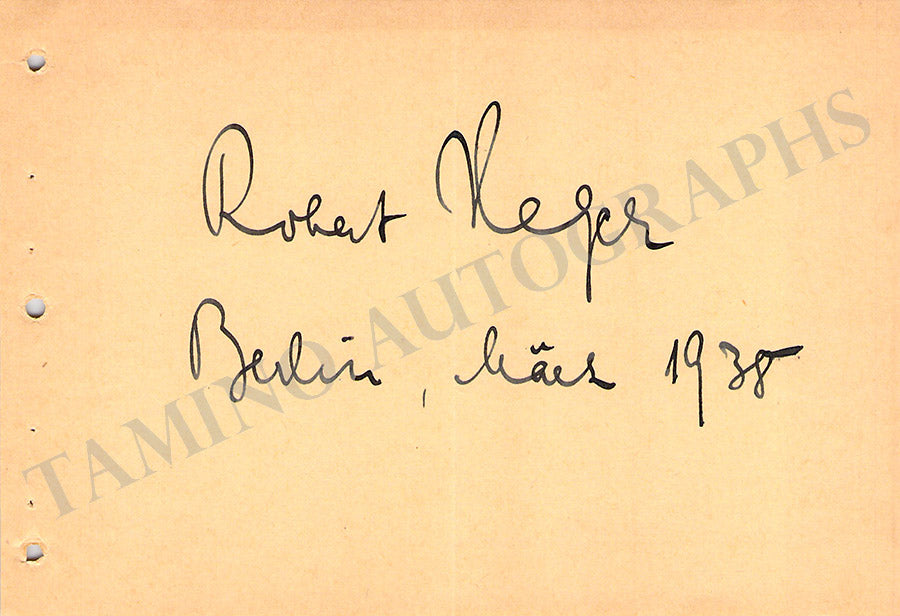 Robert Heger
Berlin, März 1938
TAMINO AUTOGRAPHS